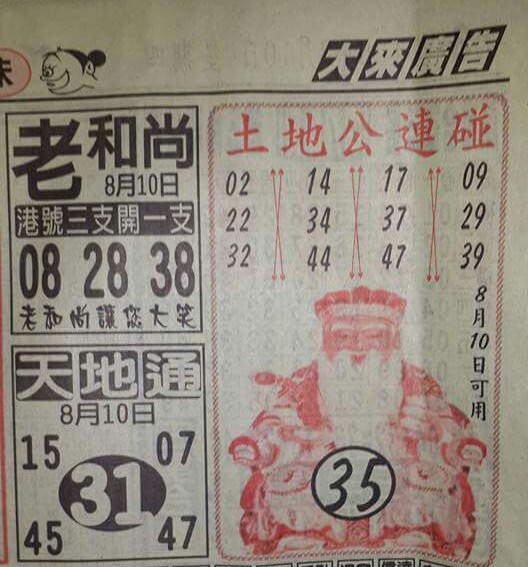 大來廣告
老和尚
8月10日
港號三支開一支
08 28 38
老和尚讓您大笑
天地通
8月10日
15 07
31
45 47
土地公連碰
02 14 17 09
22 34 37 29
32 44 47 39
8月10日可用
35